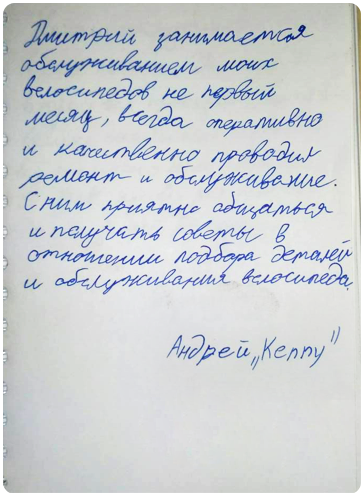 Дмитрий занимается
обслуживанием моих
велосипедов не первый
месяц, всегда оперативно
и качественно проводил
ремонт и обслуживание.
С ним приятно общаться
и получать советы в
отношении подбора деталей
и обслуживания велосипеда.
Андрей „Keппy"